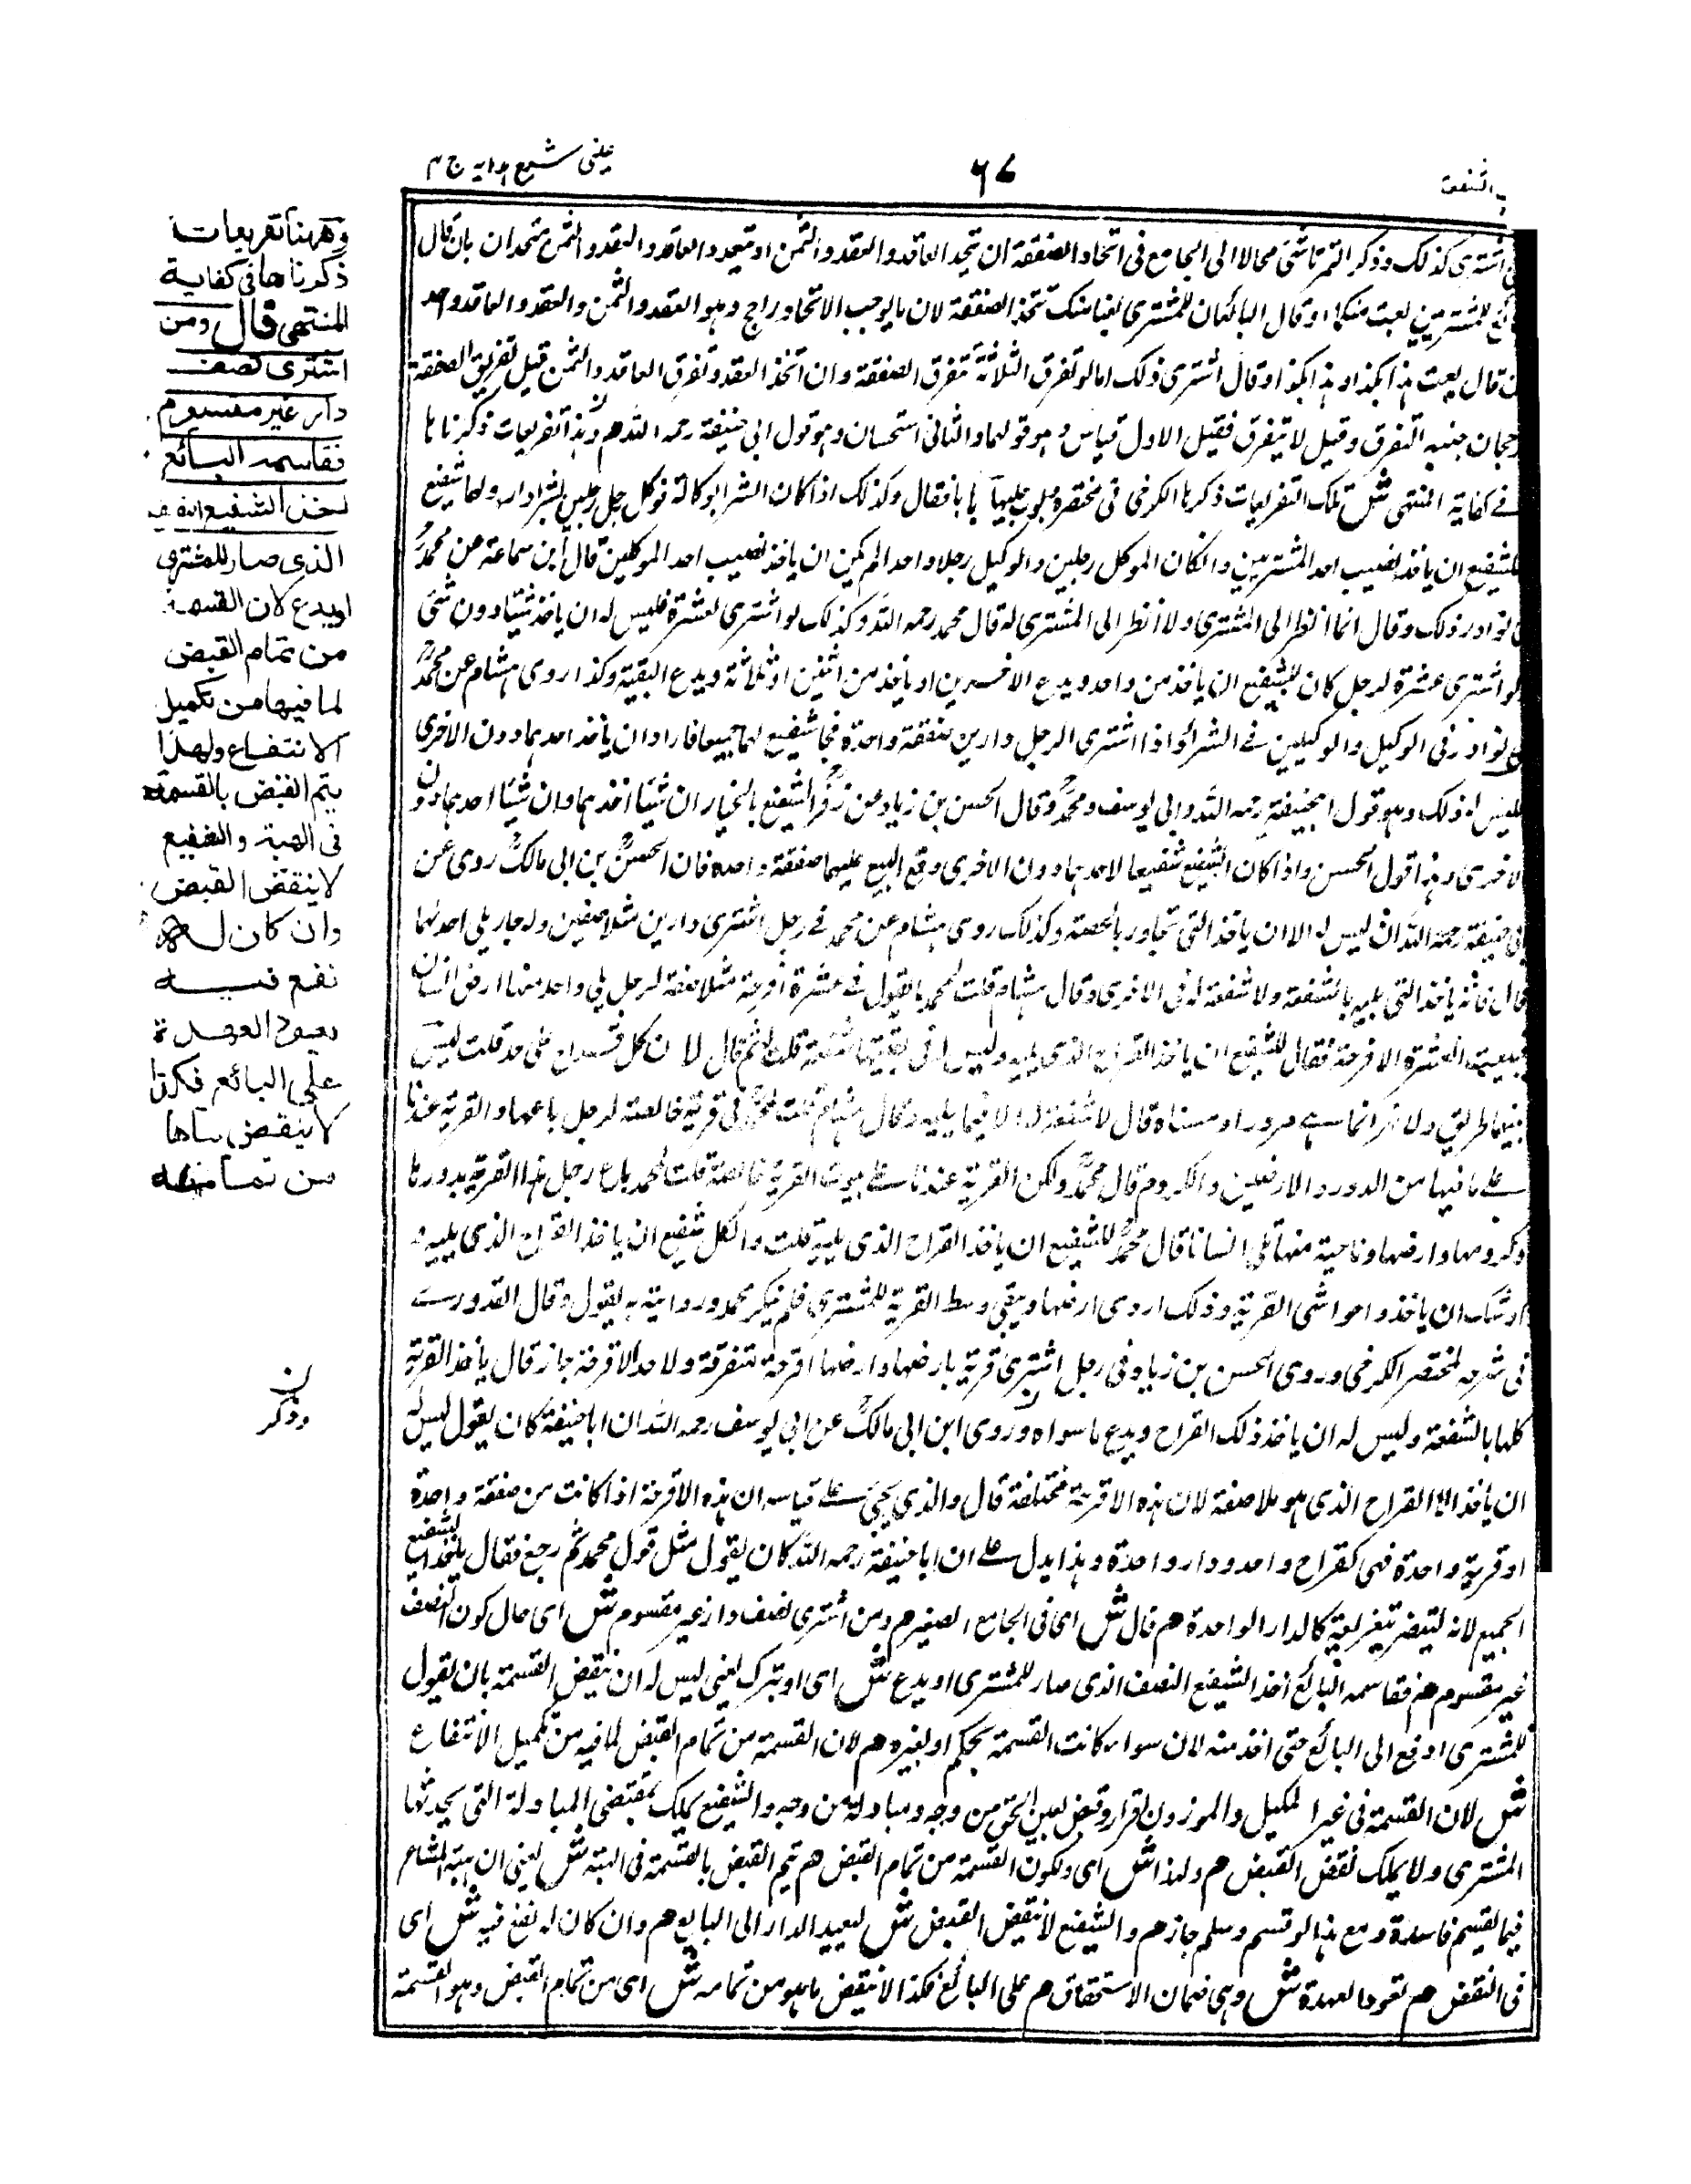 الشفعة
٦٧
عینی شرح هدایه ج ٣
اشتری کذلک وذکر التمرتاشی محالا الی الجامع فی اتحاد الصفقة ان یتحد العاقد والعقد والثمن او یتعدد العاقد والعقد والثمن متحدان بان قال
للمشتریین بعت منکما او قال البائعان للمشتری بعنا منک تتحد الصفقة لان ما یوجب الاتحاد راجح وهو العقد والثمن والعقد والعاقد واحد
قال بعت هذا بکذا وهذا بکذا وقال اشتری ذلک اما لو تفرق الثلاثة تتفرق الصفقة وان اتحد العقد وتفرق العاقد والثمن قیل تفریق الصفقة
رجحان جنبه التفرق وقیل لا یتفرق فقیل الاول قیاس وهو قولهما والثانی استحسان وهو قول ابی حنیفة رحمه الله هم وهنا تفریعات ذکرناها
فی کفایة المنتهی ش تلک التفریعات ذکرها الکرخی فی مختصره فقال وکذلک اذا کان الشراء بوکالة فوکل رجل رجلین بشراء دار ولها شفیع
للشفیع ان یاخذ نصیب احد المشتریین وان کان الموکل رجلین والوکیل رجلا واحدا لم یکن ان یاخذ نصیب احد الموکلین قال ابن سماعة عن محمد
نوادر ذلک وقال انما انظر الی المشتری ولا انظر الی المشتری له قال محمد رحمه الله وکذلک لو اشتری لعشرة فلیس له ان یاخذ شیئا دون شئ
لو اشتری عشرة لرجل کان للشفیع ان یاخذ من واحد ویدع الاخرین او یاخذ من اثنین او ثلاثة ویدع البقیة وکذا روی هشام عن محمد
نوادر فی الوکیل والوکیلین فی الشراء واذا اشتری الرجل دارین صفقة واحدة فجاء شفیع لهما جمیعا فاراد ان یاخذ احدهما دون الاخری
فلیس له ذلک وهو قول ابی حنیفة رحمه الله وابی یوسف ومحمد وقال الحسن بن زیاد عن زفر الشفیع بالخیار ان شاء اخذهما وان شاء احدهما دون
الاخری وهذا قول الحسن واذا کان الشفیع شفیعا لاحدهما دون الاخری وقع البیع علیهما صفقة واحدة فان الحسن بن ابی مالک روی عن
ابی حنیفة رحمه الله انه لیس له الا ان یاخذ التی تجاور بالحصة وکذلک روی هشام عن محمد فی رجل اشتری دارین متلاصقین وله جار یلی احدهما
قال فانه یاخذ التی یلیه بالشفعة ولا شفعة له فی الاخری وقال هشام قلت لمحمد ما تقول فی عشرة اقرحة متلاصقة لرجل یلی واحد منها ارض انسان
فبیعت العشرة الاقرحة فقال للشفیع ان یاخذ القراح الذی یلیه ولیس له فی بقیتها شفعة قلت لم قال لان کل قراح علی حدة قلت لیس
بینهما طریق ولا نهر انما هی مرور او مسناة قال لا شفعة له الا فیما یلیه وقال هشام قلت لمحمد فی قریة خالصة لرجل باعها والقریة عندنا
علی ما فیها من الدور والارضین والکروم قال محمد ولکن القریة عندنا علی بیوت القریة خالصة قلت لمحمد باع رجل هذا القریة بدورها
وکرومها وارضها وناحیة منها تلی انسانا قال محمد للشفیع ان یاخذ القراح الذی یلیه قلت ولکل شفیع ان یاخذ القراح الذی یلیه
ان یاخذوا حواشی القریة وذلک اردی ارضها ویبقی وسط القریة للمشتری فلم ینکر محمد وروایته به یقول وقال القدوری
فی شرحه لمختصر الکرخی وروی الحسن بن زیاد فی رجل اشتری قریة بارضها وارضها اقرحة متفرقة ولاحد الاقرحة جار قال یاخذ القریة
کلها بالشفعة ولیس له ان یاخذ ذلک القراح ویدع ما سواه وروی ابن ابی مالک عن ابی یوسف رحمه الله ان ابا حنیفة کان یقول لیس له
ان یاخذ الا القراح الذی هو ملاصقة لان هذه الاقرحة مختلفة قال والذی یجیئ علی قیاسه ان هذه الاقرحة اذا کانت من صفقة واحدة
او قریة واحدة فهی کقراح واحد ودار واحدة وهذا یدل علی ان ابا حنیفة رحمه الله کان یقول مثل قول محمد ثم رجع فقال یاخذ الشفیع
الجمیع لانه یتضرر بتفریقه کالدار الواحدة هم قال ش ای فی الجامع الصغیر هم ومن اشتری نصف دار غیر مقسوم ش ای حال کون النصف
غیر مقسوم هم فقاسمه البائع اخذ الشفیع النصف الذی صار للمشتری او یدع ش ای او یترک یعنی لیس له ان ینقض القسمة بان یقول
للمشتری ادفع الی البائع حتی اخذ منه لان سواء کانت القسمة بحکم او بغیره هم لان القسمة من تمام القبض لما فیه من تکمیل الانتفاع
ش لان القسمة فی غیر المکیل والموزون اقرار وقبض لعین الحق من وجه ومبادلة من وجه والشفیع یملک بمقتضی المبادلة التی یحدثها
المشتری ولا یملک نقض القبض هم ولهذا ش ای ولکون القسمة من تمام القبض هم یتم القبض بالقسمة فی الهبة ش یعنی ان هبة المشاع
فیما یقسم فاسدة ومع هذا لو قسم وسلم جاز هم والشفیع لا ینقض القبض ش لیعید الدار الی البایع هم وان کان له نفع فیه ش ای
فی النقض هم بعود العهدة ش وهی ضمان الاستحقاق هم علی البائع فکذا لا ینقض ما هو من تمامه ش ای من تمام القبض وهو القسمة
وههنا تفریعات
ذکرناها فی کفایة
المنتهی قال ومن
اشتری نصف
دار غیر مقسوم
فقاسمه البائع
اخذ الشفیع النصف
الذی صار للمشتری
او یدع لان القسمة
من تمام القبض
لما فیها من تکمیل
الانتفاع ولهذا
یتم القبض بالقسمة
فی الهبة والشفیع
لا ینقض القبض
وان کان له
نفع فیه
بعود العهدة
علی البائع فکذا
لا ینقض ما هو
من تمامه
ن
وذکر